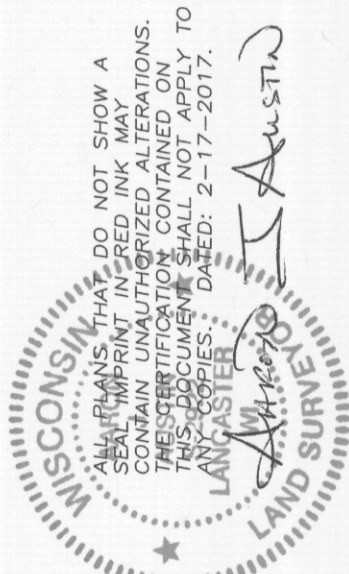 ALL PLANS THAT DO NOT SHOW A
SEAL IMPRINT IN RED INK MAY
CONTAIN UNAUTHORIZED ALTERATIONS.
THE CERTIFICATION CONTAINED ON
THIS DOCUMENT SHALL NOT APPLY TO
ANY COPIES. DATED: 2-17-2017.
WISCONSIN
LANCASTER
WI
LAND SURVEYOR
Aaron I Austin